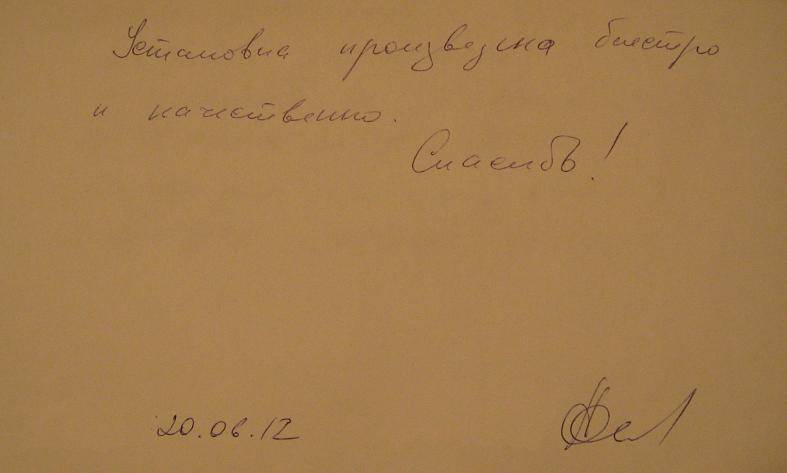 Установка произведена быстро
и качественно.
Спасибо!
20.06.12